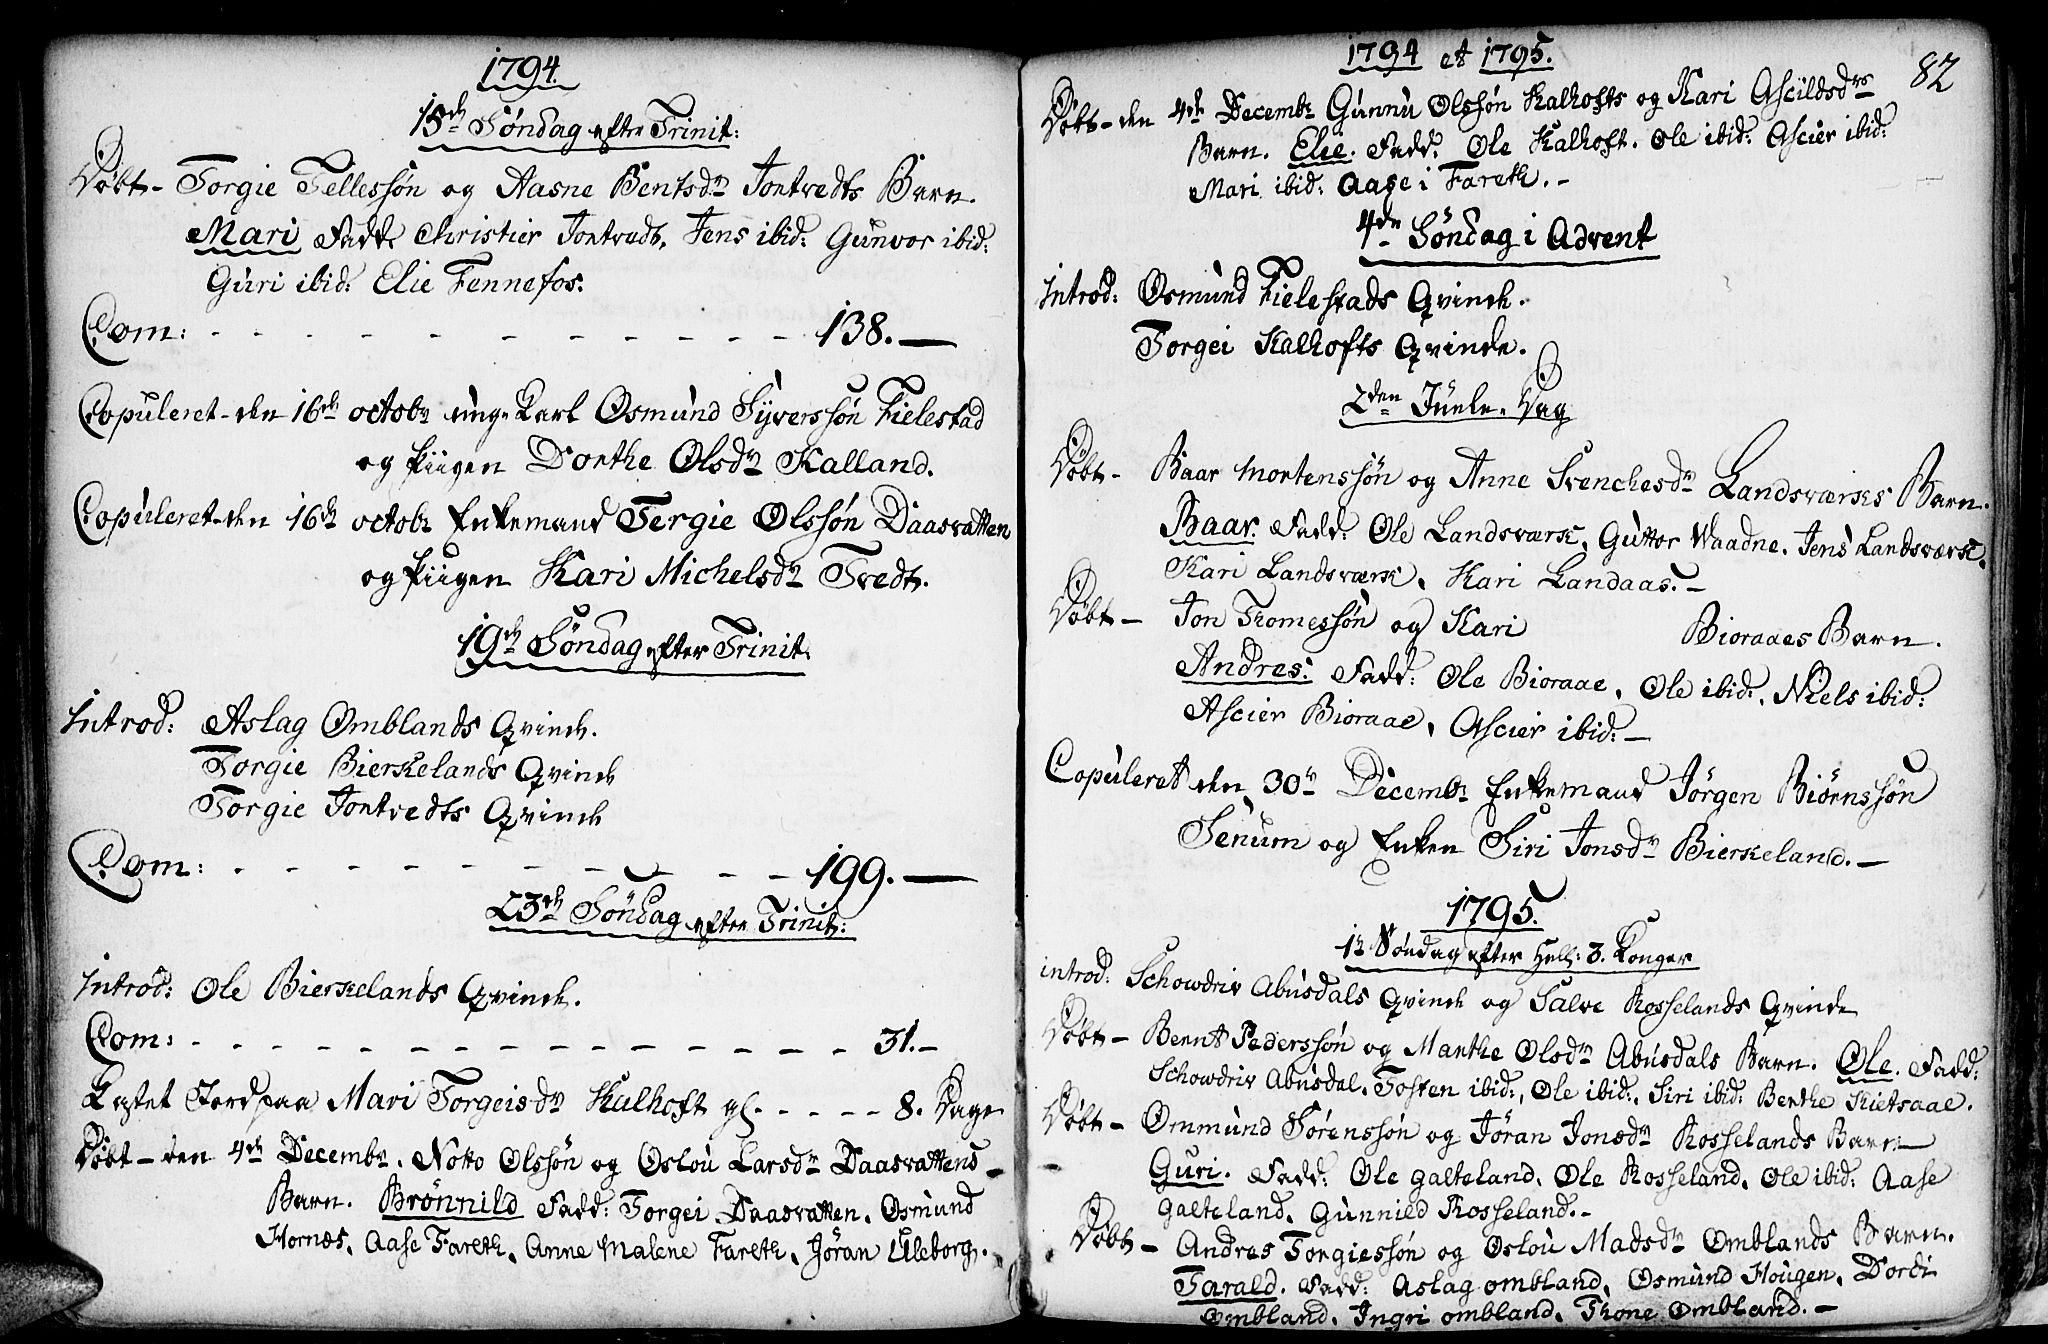 1794.
15de Søndag efter Trinit:
Døbt - Torgie Tellessøn og Aasne Bentsdr Jontvedts Barn.
Mari Fadd. Christier Jontvedt, Jens ibid: Gunvor ibid:
Guri ibid: Elie Fennefos.
Com: - - - - - - - - - - - 138. —
Copuleret - den 16de octobr unge Karl Osmund Syverssøn Fielestad
og Piigen Dorthe Olsdr Kalland.
Copuleret - den 16de octobr Enkemand Tergie Olssøn Daasvatten
og Piigen Kari Michelsdr Tvedt.
19de Søndag efter Trinit.
Introd: Aslag Omblands Qvinde.
Torgie Bierkelands Qvinde
Torgie Jontvedts Qvinde
Com: - - - - - - - - - - - 199. —
23de Søndag efter Trinit:
Introd: Ole Bierkelands Qvinde.
Com: - - - - - - - - - - - - - - - 31. —
Kastet Jord paa Mari Torgeisdr Kalhoft gl. - - - - - 8. Dage
Døbt - den 4de Decembr. Notto Olssøn og Oslou Larsdr Daasvattens
Barn. Brønnild Fadd: Torgei Daasvatten. Osmund
Hornæs, Aase Fareth, Anne Malene Fareth, Jøran Uleborg.
1794 et 1795.
82
Døbt - den 4de Decembr Gunnu Olssøn Kalhofts og Kari Ascildsdr
Barn. Elie. Fadd: Ole Kalhoft. Ole ibid: Ascier ibid:
Mari ibid: Aase i Fareth. -
4de Søndag i Advent
Introd: Osmund Fielestads Qvinde.
Torgei Kalhofts Qvinde.
2den Juele-Dag
Døbt - Baar Mortenssøn og Anne Svenchesdr Landsværks Barn.
Baar. Fadd: Ole Landsværk, Guttor Waadne. Jens Landsværk,
Kari Landsværk, Kari Landaas. -
Døbt - Jon Tromessøn og Kari Bioraaes Barn.
Andres: Fadd: Ole Bioraae, Ole ibid:, Niels ibid:
Ascier Bioraae, Ascier ibid: -
Copuleret den 30te Decembr Enkemand Jørgen Biørnssøn
Senum og Enken Siri Jonsdr Bierkeland. —
1795.
1te Søndag efter Hell: 3. Konger
introd: Schowdriv Abusdals Qvinde og Salve Rosselands Qvinde
Døbt - Bernt Pederssøn og Marthe Olsdr Abusdals Barn. Ole. Fadd:
Schowdriv Abusdal. Tosten ibid:, Ole ibid:, Siri ibid: Berthe Kietsaae.
Døbt - Ommund Sørenssøn og Jøran Jonsdr Rosselands Barn -
Guri. Fadd: Ole Galteland. Ole Rosseland. Ole ibid: Aase
Galteland. Gunnild Rosseland. -
Døbt - Andres Torgiessøn og Oslou Madsdr Omblands Barn.
Tarald. Fadd: Aslag Ombland. Osmund Hougen. Dordi
Ombland, Ingri Ombland. Thone Ombland. -